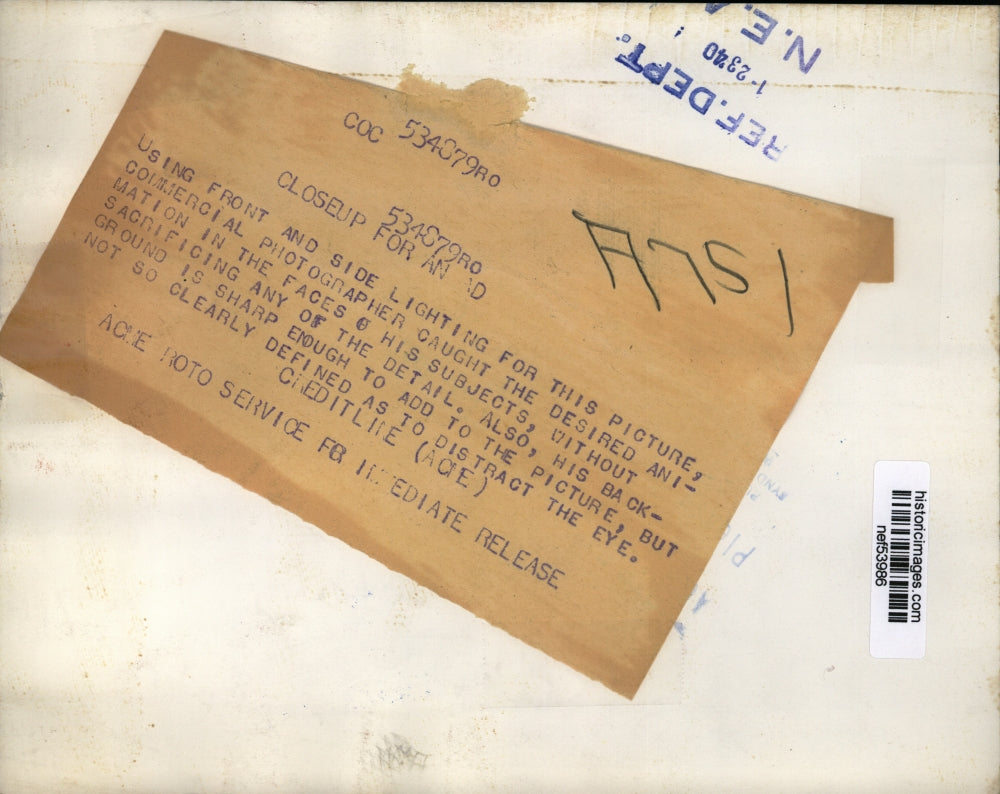 COC 534C79RO
534C79RO
CLOSEUP FOR AN AD
USING FRONT AND SIDE LIGHTING FOR THIS PICTURE,
COMMERCIAL PHOTOGRAPHER CAUGHT THE DESIRED ANI-
MATION IN THE FACES O HIS SUBJECTS, WITHOUT
SACRIFICING ANY OF THE DETAIL. ALSO, HIS BACK-
GROUND IS SHARP ENOUGH TO ADD TO THE PICTURE, BUT
NOT SO CLEARLY DEFINED AS TO DISTRACT THE EYE.
CREDITLINE (ACME)
ACME ROTO SERVICE FR IMMEDIATE RELEASE
REF. DEPT.
1-2340
N.E.A
historicimages.com
nef53986